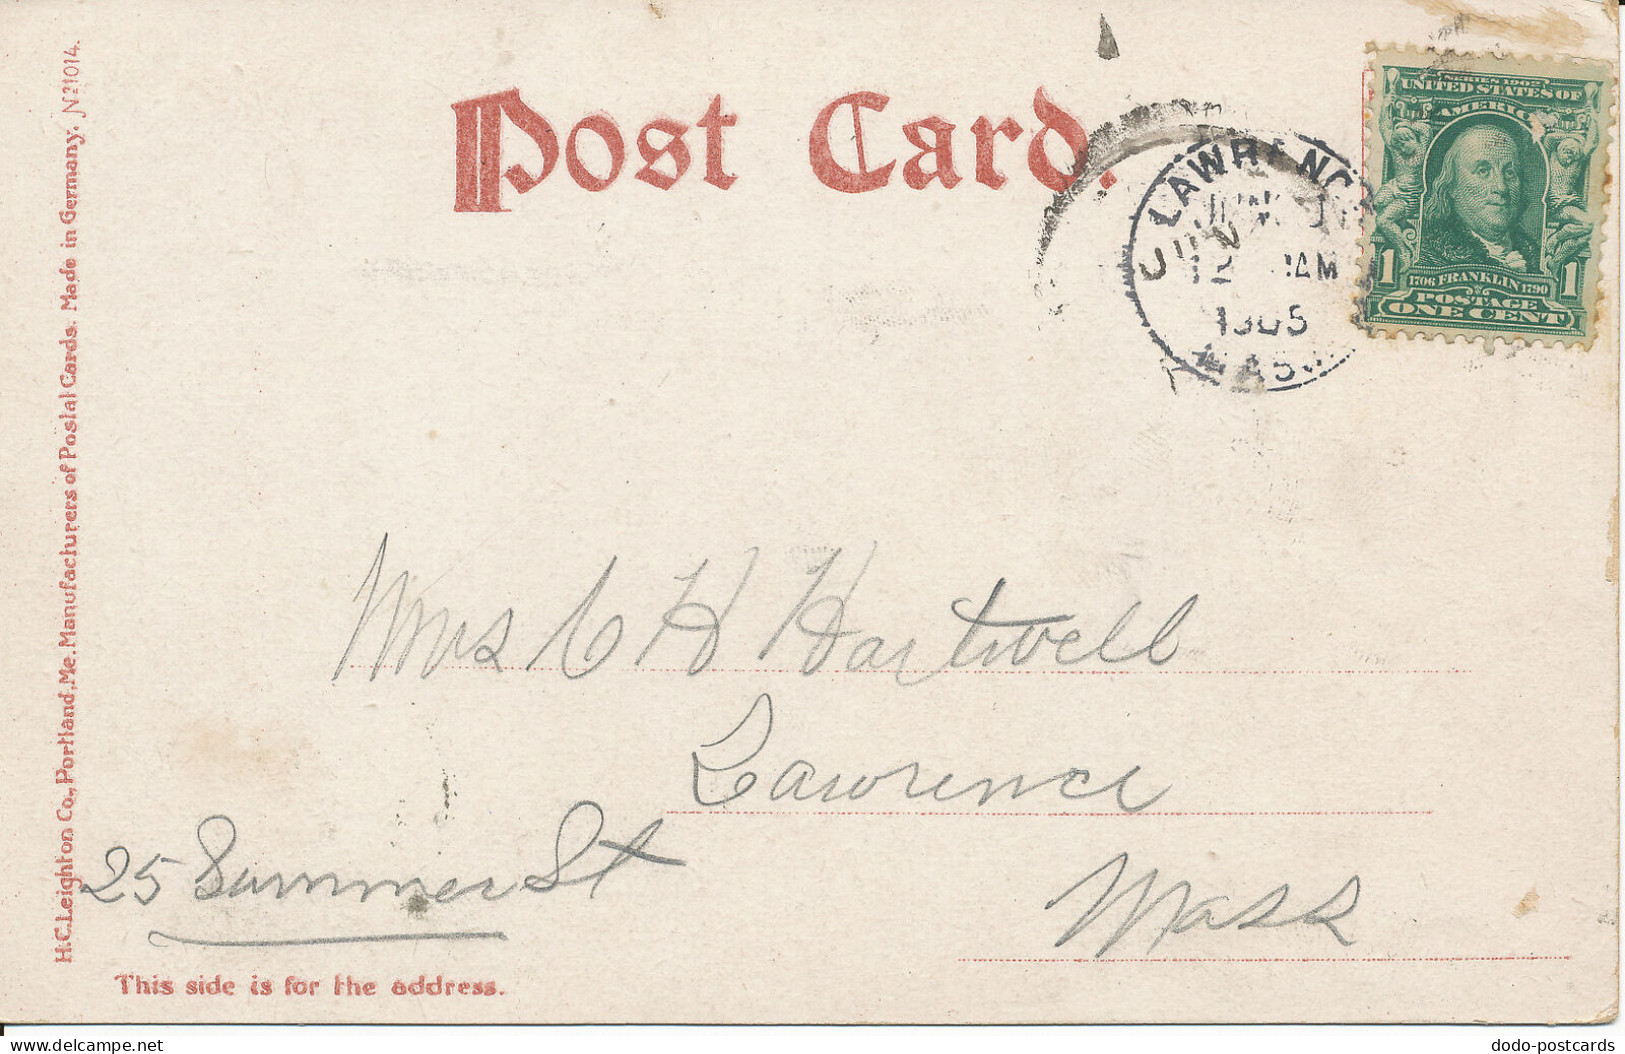 Post Card.
H.C. Leighton Co., Portland, Me. Manufacturers of Postal Cards. Made in Germany. No 1014.
LAWRENCE
JUN
12 AM
1905
MASS
SERIES 1902
UNITED STATES OF
AMERICA
1706 FRANKLIN 1790
1 POSTAGE 1
ONE CENT
Mrs C H Hartwell
Lawrence
25 Summer St
Mass
This side is for the address.
delcampe.net
dodo-postcards